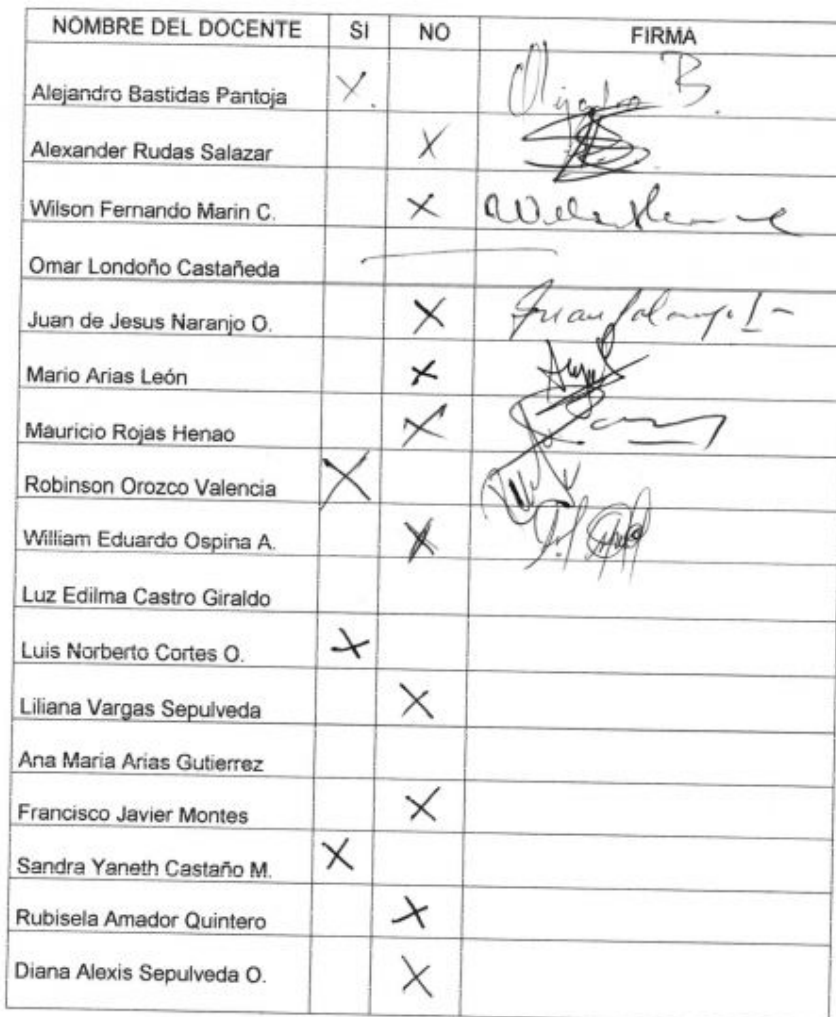 NOMBRE DEL DOCENTE SI NO FIRMA
Alejandro Bastidas Pantoja X B.
Alexander Rudas Salazar X
Wilson Fernando Marin C. X
Omar Londoño Castañeda
Juan de Jesus Naranjo O. X Juan
Mario Arias León X
Mauricio Rojas Henao X
Robinson Orozco Valencia X
William Eduardo Ospina A. X
Luz Edilma Castro Giraldo
Luis Norberto Cortes O. X
Liliana Vargas Sepulveda X
Ana Maria Arias Gutierrez
Francisco Javier Montes X
Sandra Yaneth Castaño M. X
Rubisela Amador Quintero X
Diana Alexis Sepulveda O. X